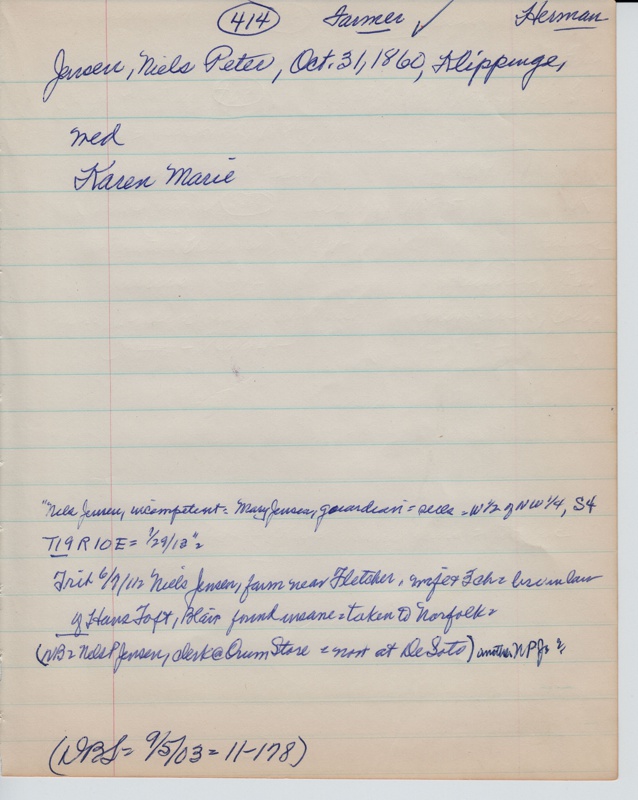 414 Farmer ✓ Herman
Jensen, Niels Peter, Oct. 31, 1860, Klippinge,
wed
Karen Marie
"Nels Jensen, incompetent = Mary Jensen, guardian = sells = W 1/2 of NW 1/4, S4
T19 R10E = 1/29/13" =
Trib 6/7/11 = Niels Jensen, farm near Fletcher, wife & 7 ch = bro in law
of Hans Toft, Blair found insane = taken to Norfolk =
(NB = Nels P Jensen, clerk @ Orum Store = now at DeSoto) another NPJ = ?
(DBS = 9/5/03 = 11-178)